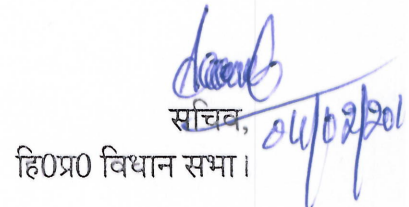 सचिव,
04/02/201
हि0प्र0 विधान सभा।